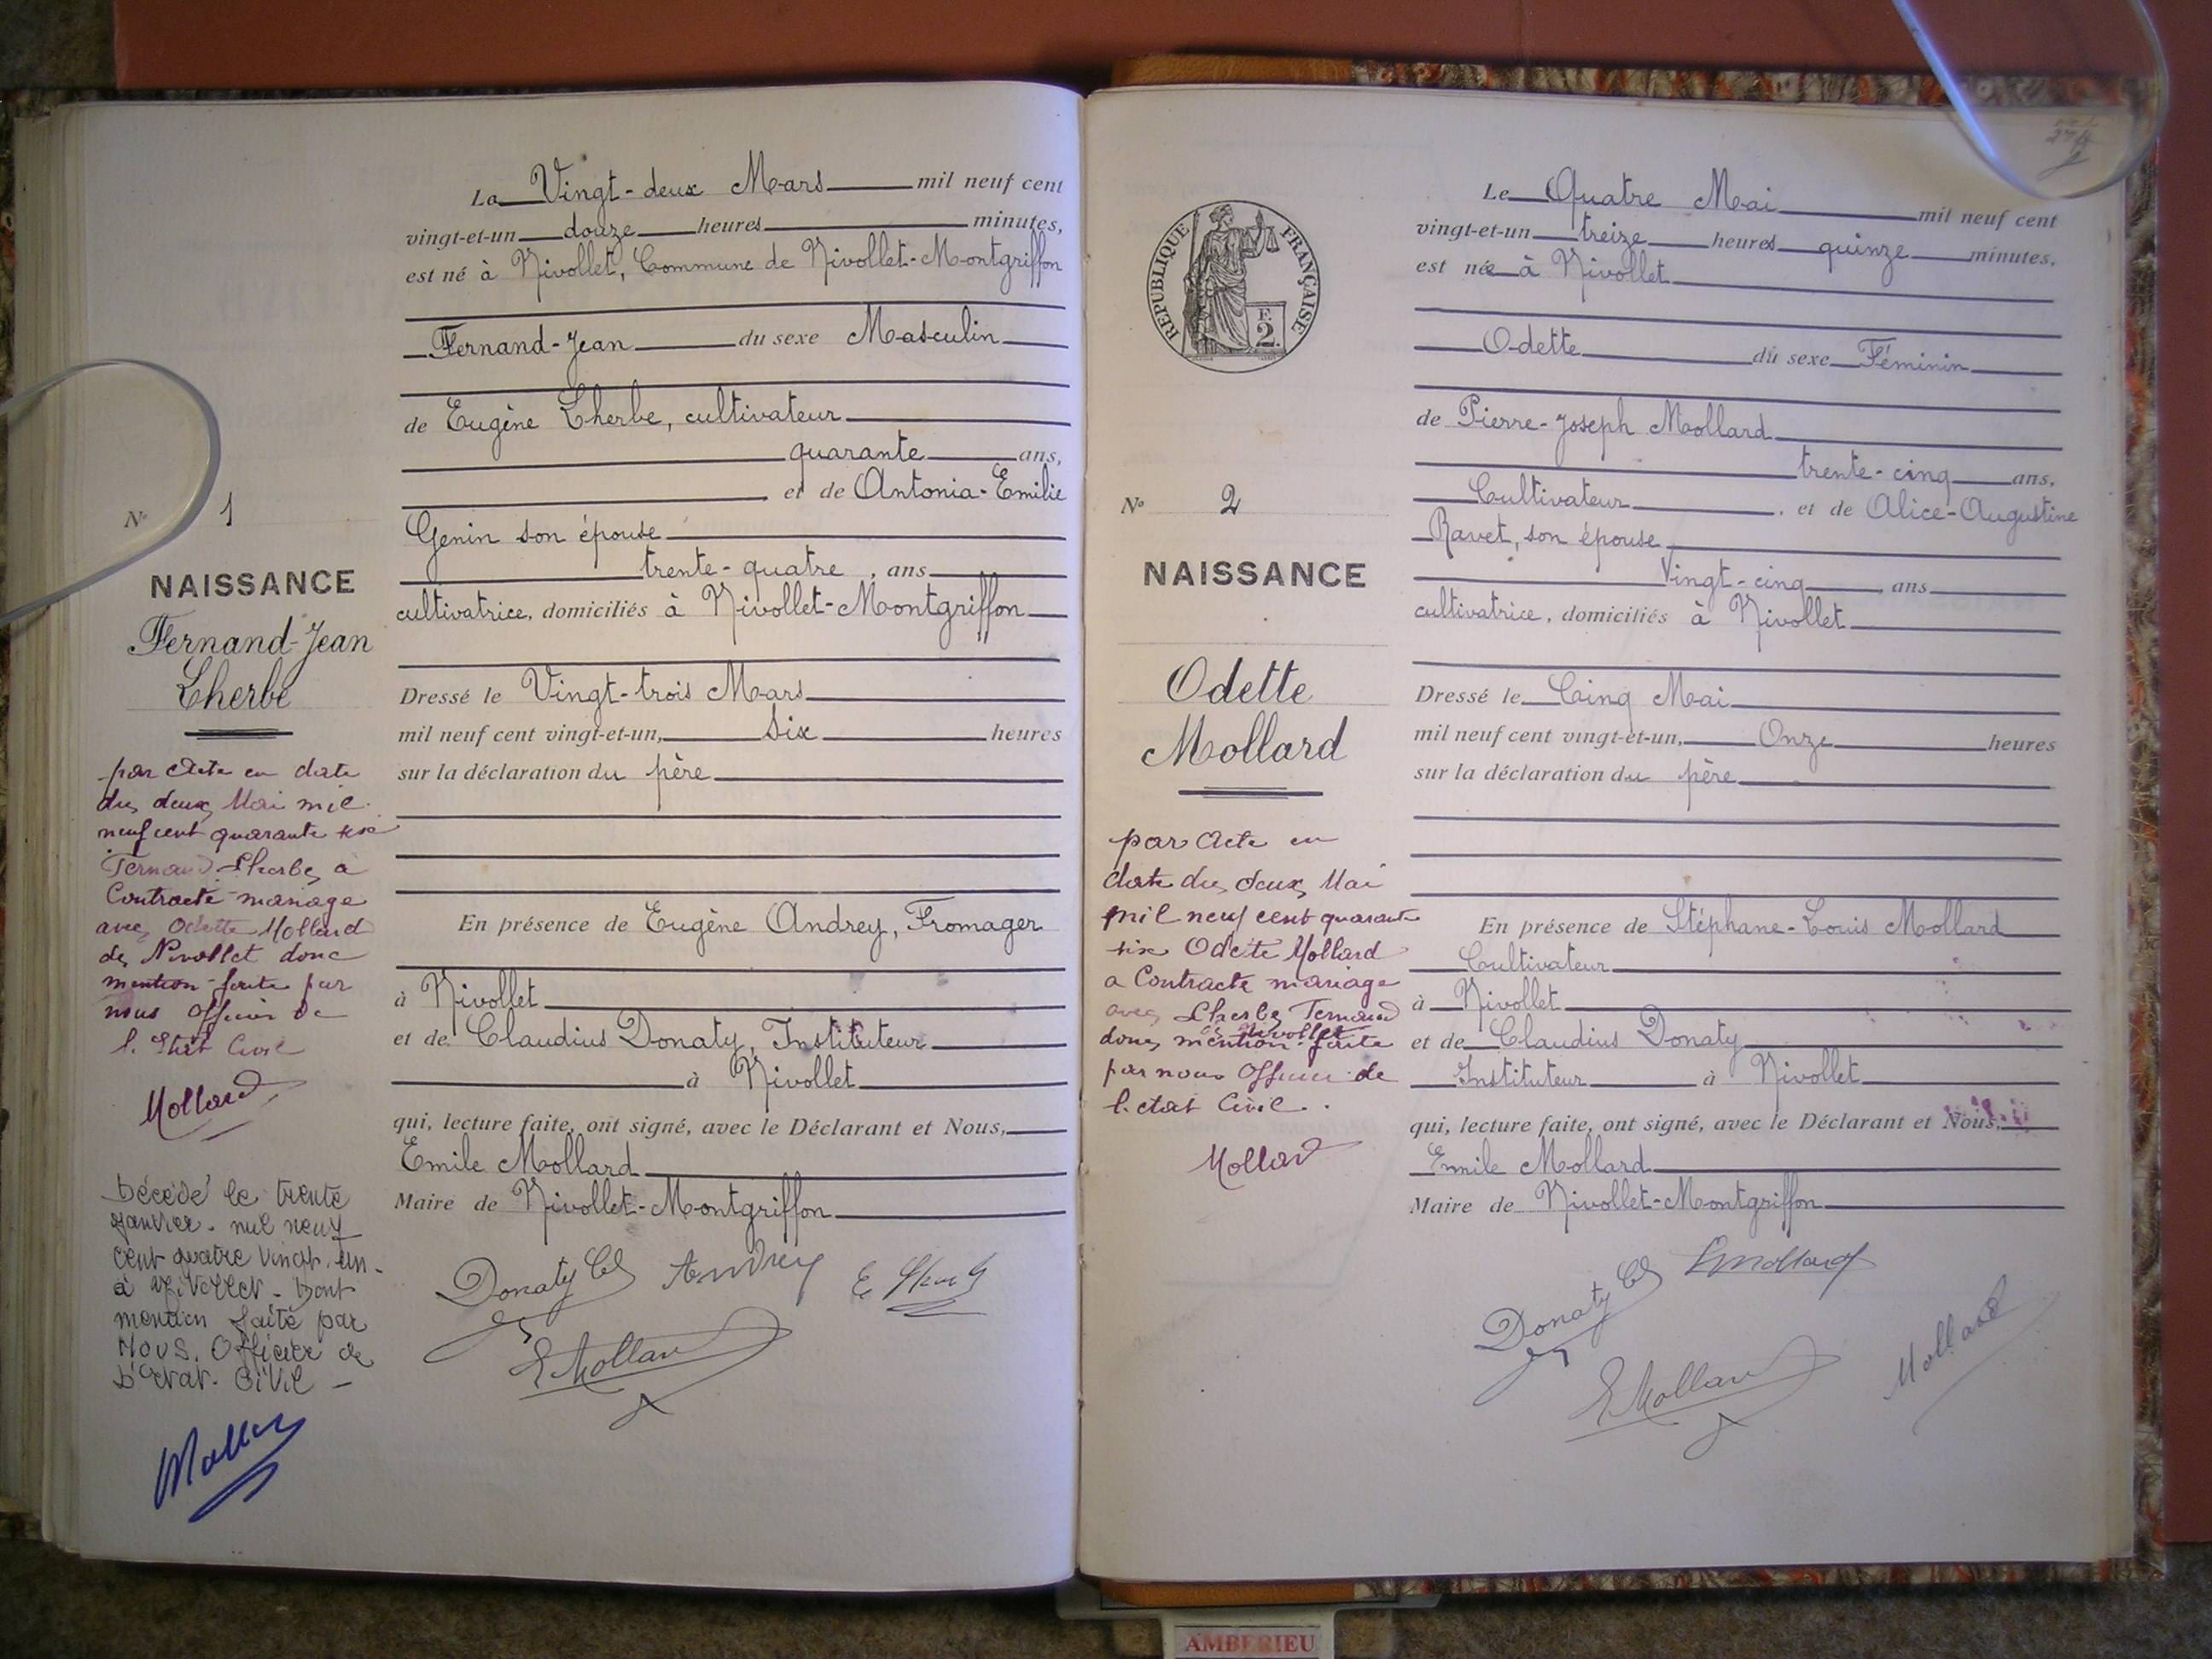 Le Vingt-deux Mars mil neuf cent
vingt-et-un douze heures minutes,
est né à Nivollet, Commune de Nivollet-Montgriffon
Fernand-Jean du sexe Masculin
de Eugène Lherbe, cultivateur
quarante ans,
et de Antonia-Emilie
Genin son épouse
trente-quatre, ans
cultivatrice, domiciliés à Nivollet-Montgriffon
Dressé le Vingt-trois Mars
mil neuf cent vingt-et-un, Six heures
sur la déclaration du père
En présence de Eugène Andrey, Fromager
à Nivollet
et de Claudius Donaty, Instituteur
à Nivollet
qui, lecture faite, ont signé, avec le Déclarant et Nous,
Emile Mollard
Maire de Nivollet-Montgriffon
Donaty Cl Andrey
E Mollard
No 1
NAISSANCE
Fernand-Jean
Lherbe
par Acte en date
du deux Mai mil
neuf cent quarante six
Fernand Lherbe a
Contracté mariage
avec Odette Mollard
de Nivollet donc
mention faite par
nous Officier de
l'Etat Civil
Mollard
Décédé le trente
Janvier mil neuf
cent quatre vingt un
à Nivollet - Dont
mention faite par
Nous, Officier de
l'Etat Civil -
274
Le Quatre Mai mil neuf cent
vingt-et-un treize heures quinze minutes.
est née à Nivollet
Odette du sexe Féminin
de Pierre-Joseph Mollard
trente-cinq ans,
Cultivateur, et de Alice-Augustine
Ravet, son épouse
Vingt-cinq ans
cultivatrice, domiciliés à Nivollet
Dressé le Cinq Mai
mil neuf cent vingt-et-un, Onze heures
sur la déclaration du père
En présence de Stéphane-Louis Mollard
Cultivateur
à Nivollet
et de Claudius Donaty
Instituteur à Nivollet
qui, lecture faite, ont signé, avec le Déclarant et Nous,
Emile Mollard
Maire de Nivollet-Montgriffon
Donaty Cl Mollard
E Mollard Mollard
RÉPUBLIQUE FRANÇAISE
F.
2.
No 2
NAISSANCE
Odette
Mollard
par Acte en
date du deux Mai
mil neuf cent quarante
six Odette Mollard
a Contracté mariage
avec Lherbe Fernand
de Nivollet
donc mention faite
par nous Officier de
l'etat Civil.
Mollard
AMBERIEU